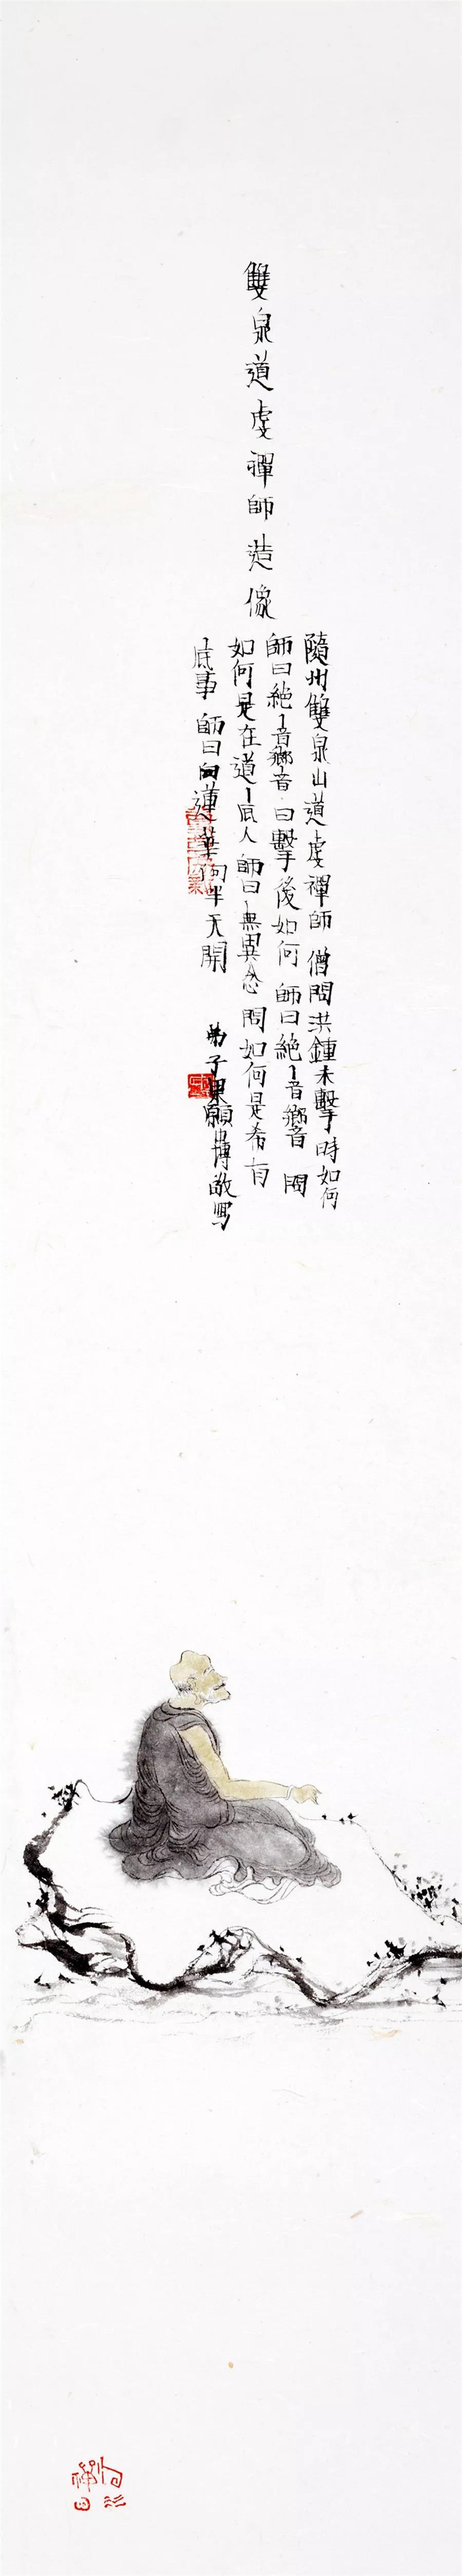 雙泉道虔禪師造像
隨州雙泉山道虔禪師 僧問洪鍾未擊時如何
師曰絕音響音 曰擊後如何 師曰絕音響音 問
如何是在道底人 師曰無異念 問如何是希有
底事 師曰白蓮華向半天開
弟子果願博敬寫